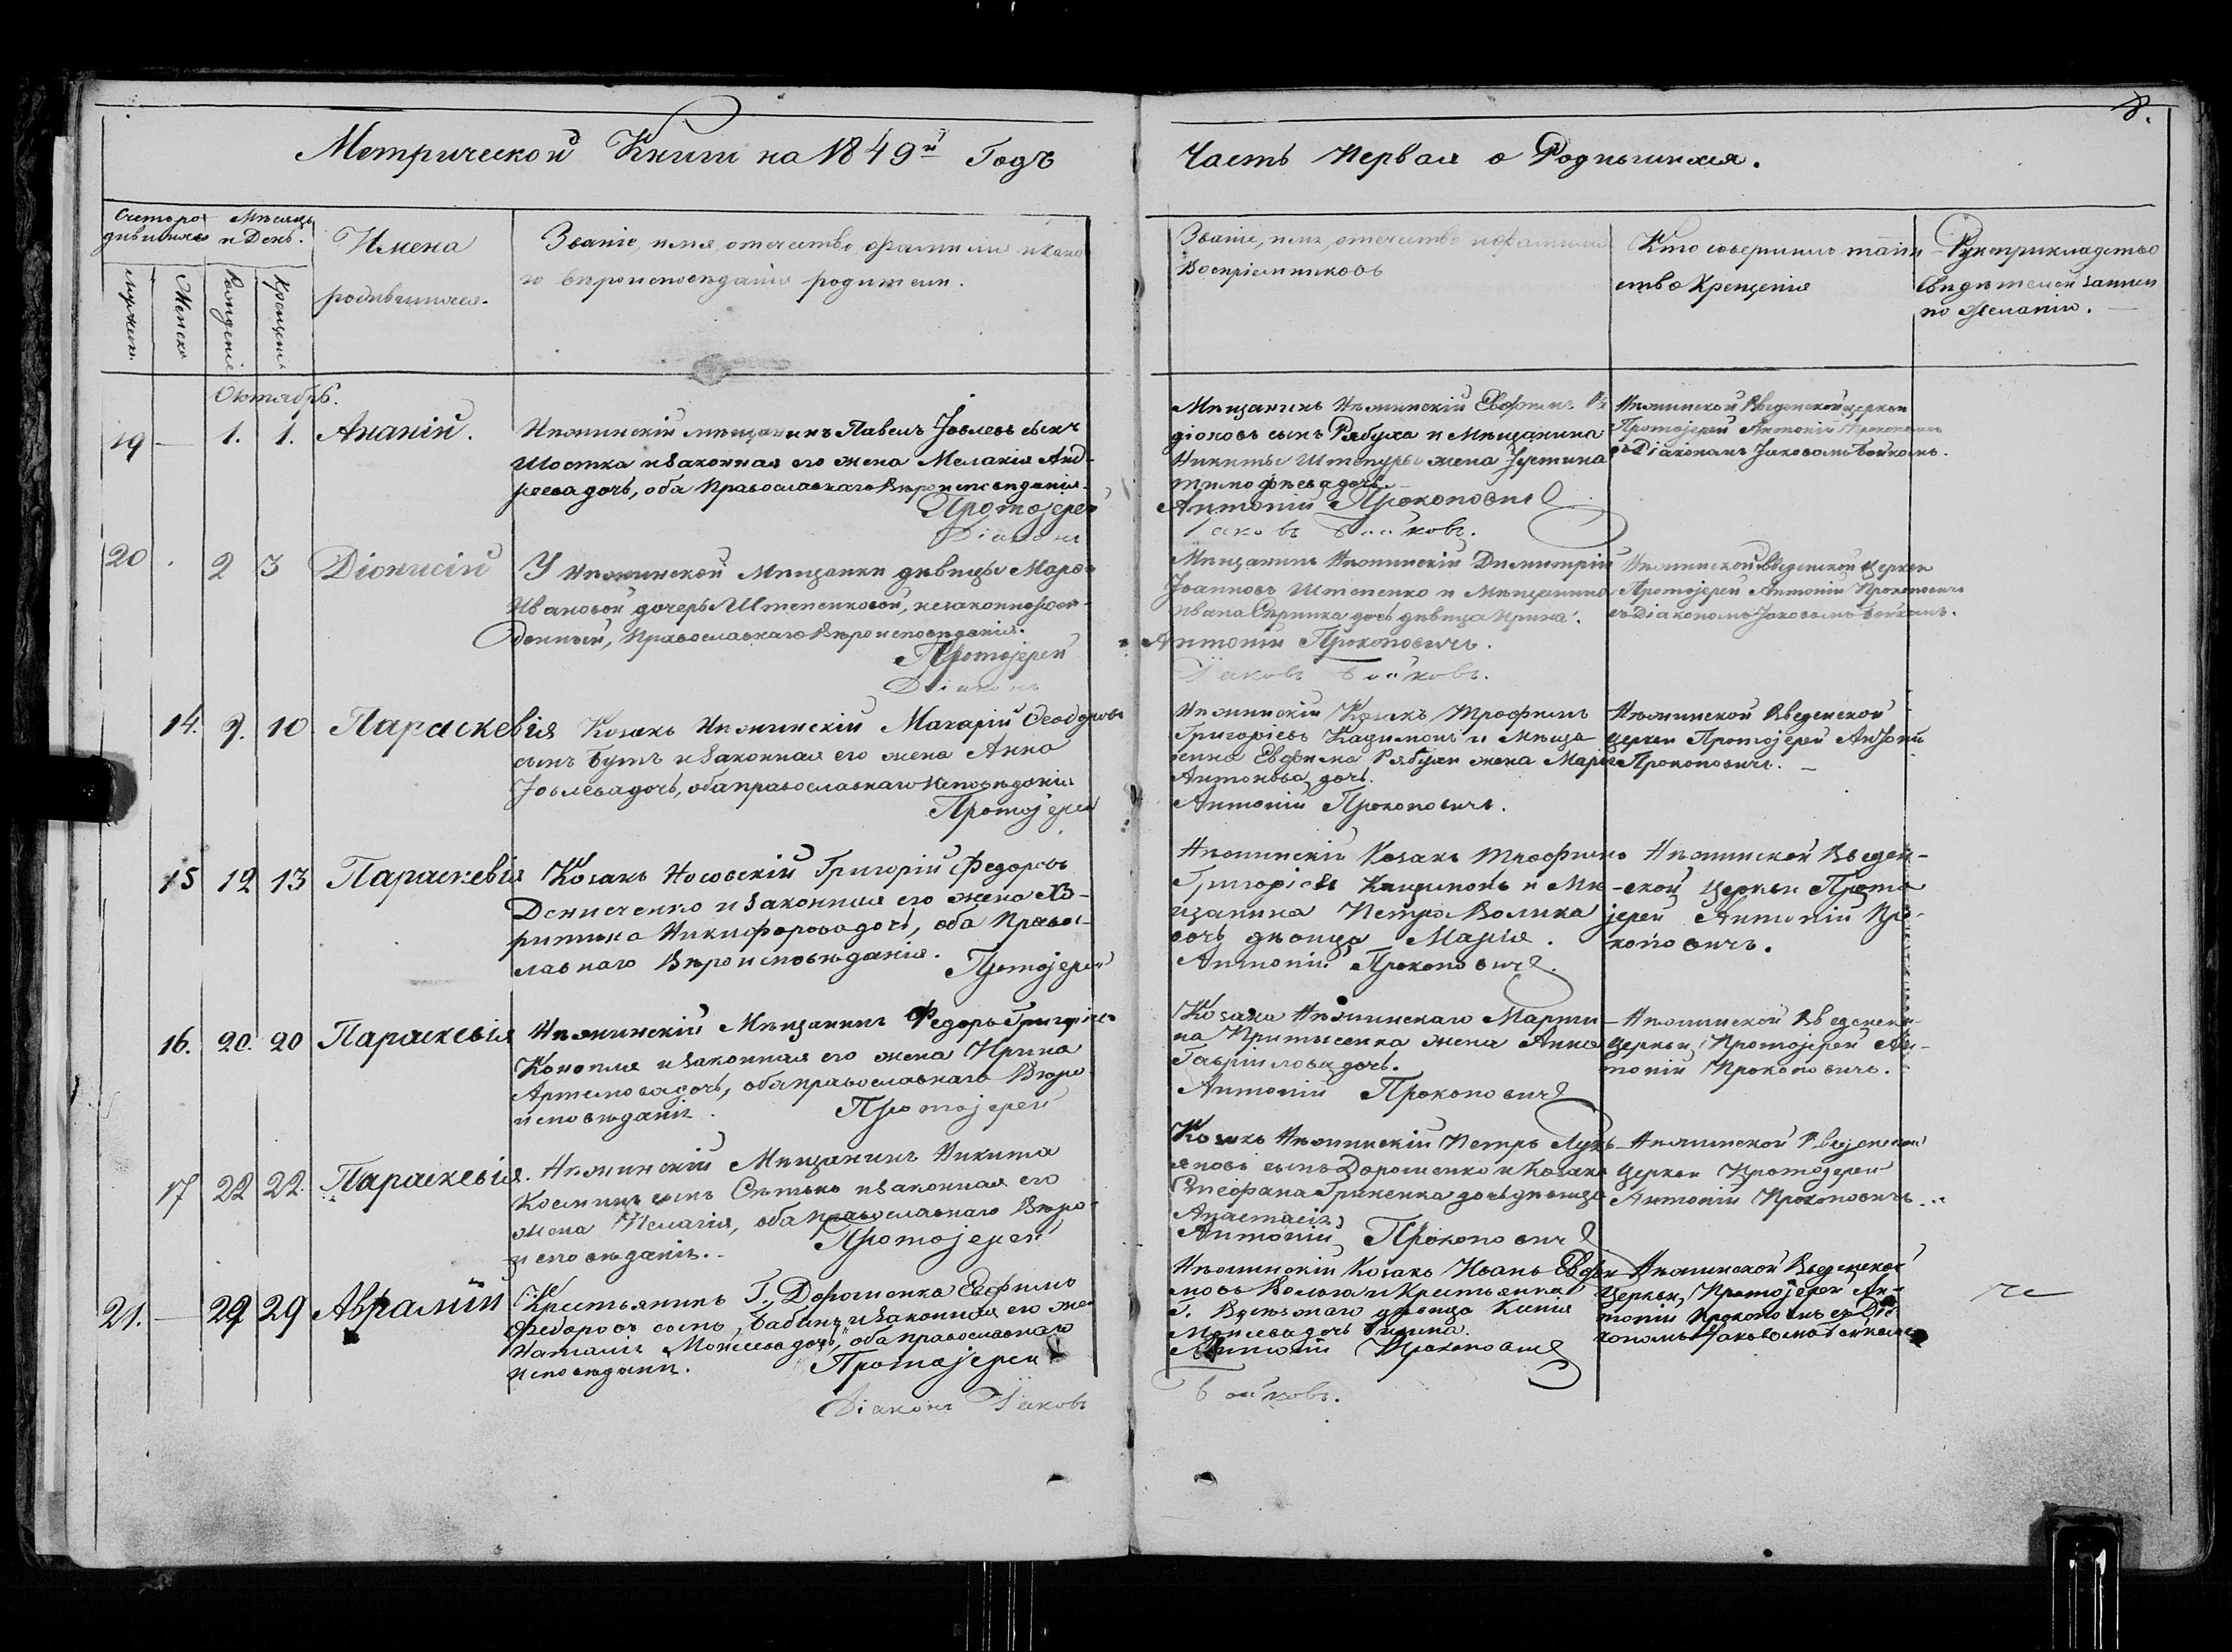 8.
Метрической Книги на 1849й Годъ
Часть Первая о Родившихся.
Счетъ ро- Мѣсяцъ
дившихся и День.
Мужеск.
Женско
Рожденіе
Крещеніе
Имена
родившихся.
Званіе, имя, отечество, фамилія и како
го вѣроисповѣданія родители.
Званіе, имя, отечество и фамилія
Воспріемниковъ
Кто совершилъ таин
ство Крещенія
Рукоприкладство
свидѣтелей записи
по желанію.
Октябрь.
19 — 1. 1. Ананій.
Нѣжинскій мѣщанинъ Павелъ Іовлевъ сынъ
Шостка и законная его жена Меланія Анд-
реева дочь, оба Православнаго Вѣроисповѣданія.
Протоіерей
Діаконъ
Мѣщанинъ Нѣжинскій Евфимъ
діоновъ сынъ Рябуха и Мѣщанина
Никиты Штепуры жена Іустина
тимофѣева дочь.
Антоній Прокоповичъ
Іаковъ Бойковъ.
Нѣжинской Введенской церкви
Протоіерей Антоній Прокоповичъ
съ Діакономъ Іаковомъ Бойковъ.
20 2 3 Діонисій
У Нѣжинской Мѣщанки дѣвицы Марѳы
Ивановой дочери Штепенковой, незаконнорож-
денный, Православнаго Вѣроисповѣданія.
Протоіерей
Діаконъ
Мѣщанинъ Нѣжинскій Димитрій
Іоанновъ Штепенко и Мѣщанина
Ивана Скрипка дочь дѣвица Ирина.
Антоній Прокоповичъ.
Іаковъ Бойковъ.
Нѣжинской Введенской Церкви
Протоіерей Антоній Прокоповичъ
съ Діакономъ Іаковомъ Бойковъ.
14. 9. 10 Параскевія
Козакъ Нѣжинскій Макарій Ѳеодоровъ
сынъ Бутъ и законная его жена Анна
Іовлева дочь, оба православнаго исповѣданія
Протоіерей
Нѣжинскій Козакъ Трофимъ
Григоріевъ и Мѣща
нина Евфима Рябухи жена Марія
Антонова дочь.
Антоній Прокоповичъ.
Нѣжинской Введенской
церкви Протоіерей Антоній
Прокоповичъ.
15 12 13 Параскевія
Козакъ Носовскій Григорій Федоровъ
Денисченко и законная его жена Хв-
Никифорова дочь, оба Правос-
лавнаго Вѣроисповѣданія.
Протоіерей
Нѣжинскій Козакъ Трофимъ
Григоріевъ и Мѣ-
щанина Петра Волика
дочь дѣвица Марія.
Антоній Прокоповичъ.
Нѣжинской Введен-
ской Церкви Прото
іерей Антоній Про-
коповичъ.
16. 20. 20 Параскевія
Нѣжинскій Мѣщанинъ Федоръ Григоріевъ
Конопля и законная его жена Ирина
Артемова дочь, оба православнаго Вѣро
исповѣданія.
Протоіерей
Козака Нѣжинскаго Марти-
на жена Анна
Гавріилова дочь.
Антоній Прокоповичъ
Нѣжинской Введенской
Церкви Протоіерей Ан-
тоній Прокоповичъ.
17 22 22. Параскевія.
Нѣжинскій Мѣщанинъ Никита
Косминъ сынъ Ситько и законная его
жена Пелагія, оба православнаго Вѣро-
исповѣданія.
Протоіерей
Козакъ Нѣжинскій Петръ Лукь-
яновъ сынъ Дорошенко и Козака
Стефана Гриненка дочь дѣвица
Анастасія
Антоній Прокоповичъ
Нѣжинской Введенской
Церкви Протоіерей
Антоній Прокоповичъ.
21. — 29 29 Аврамій
Крестьянинъ Г. Дорошенка Евфимъ
Федоровъ сынъ Бабичъ и законная его же-
Наталія Моисеева дочь, оба православнаго
исповѣданія.
Протоіерей
Діаконъ Іаковъ
Нѣжинскій Козакъ Иванъ Евфи
мовъ и Крестьянина
Г. дѣвица
Моисеева дочь
Антоній Прокоповичъ
Бойковъ.
Нѣжинской Введенской
Церкви Протоіерей Ан-
тоній Прокоповичъ съ Діа
кономъ Іаковомъ Бойковъ